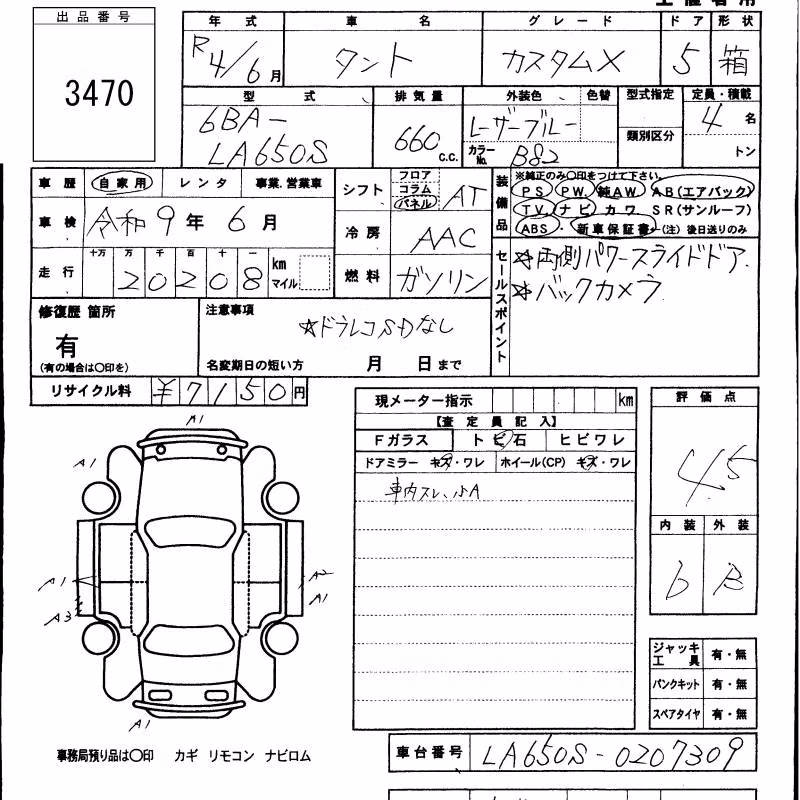 出品番号
3470
年式 車名 グレード ドア 形状
R4/6月 タント カスタムX 5 箱
型式 排気量 外装色 色替 型式指定 定員・積載
6BA-LA650S 660 C.C. レーザーブルー 類別区分 4名
カラーNo. B82 トン
車歴 自家用 レンタ 事業.営業車
車検 令和9年6月
走行 十万 万 千 百 十 一
20208 km マイル
シフト フロア コラム パネル AT
冷房 AAC
燃料 ガソリン
装備品 ※純正のみ○印をつけて下さい。
PS PW 純AW AB(エアバック)
TV ナビ カワ SR(サンルーフ)
ABS・新車保証書←(注) 後日送りのみ
セールスポイント
☆両側パワースライドドア.
☆バックカメラ
修復歴 箇所
有
(有の場合は○印を)
注意事項
☆ドラレコSDなし
名変期日の短い方 月 日まで
リサイクル料 ¥7150円
現メーター指示 km
【査定員記入】
Fガラス トビ石 ヒビワレ
ドアミラー キズ・ワレ ホイール(CP) キズ・ワレ
車内スレ、小A
評価点
4.5
内装 外装
b B
ジャッキ工具 有・無
パンクキット 有・無
スペアタイヤ 有・無
A1
A1
A1
A3
A2
A1
A1
事務局預り品は○印 カギ リモコン ナビロム
車台番号 LA650S-0207309